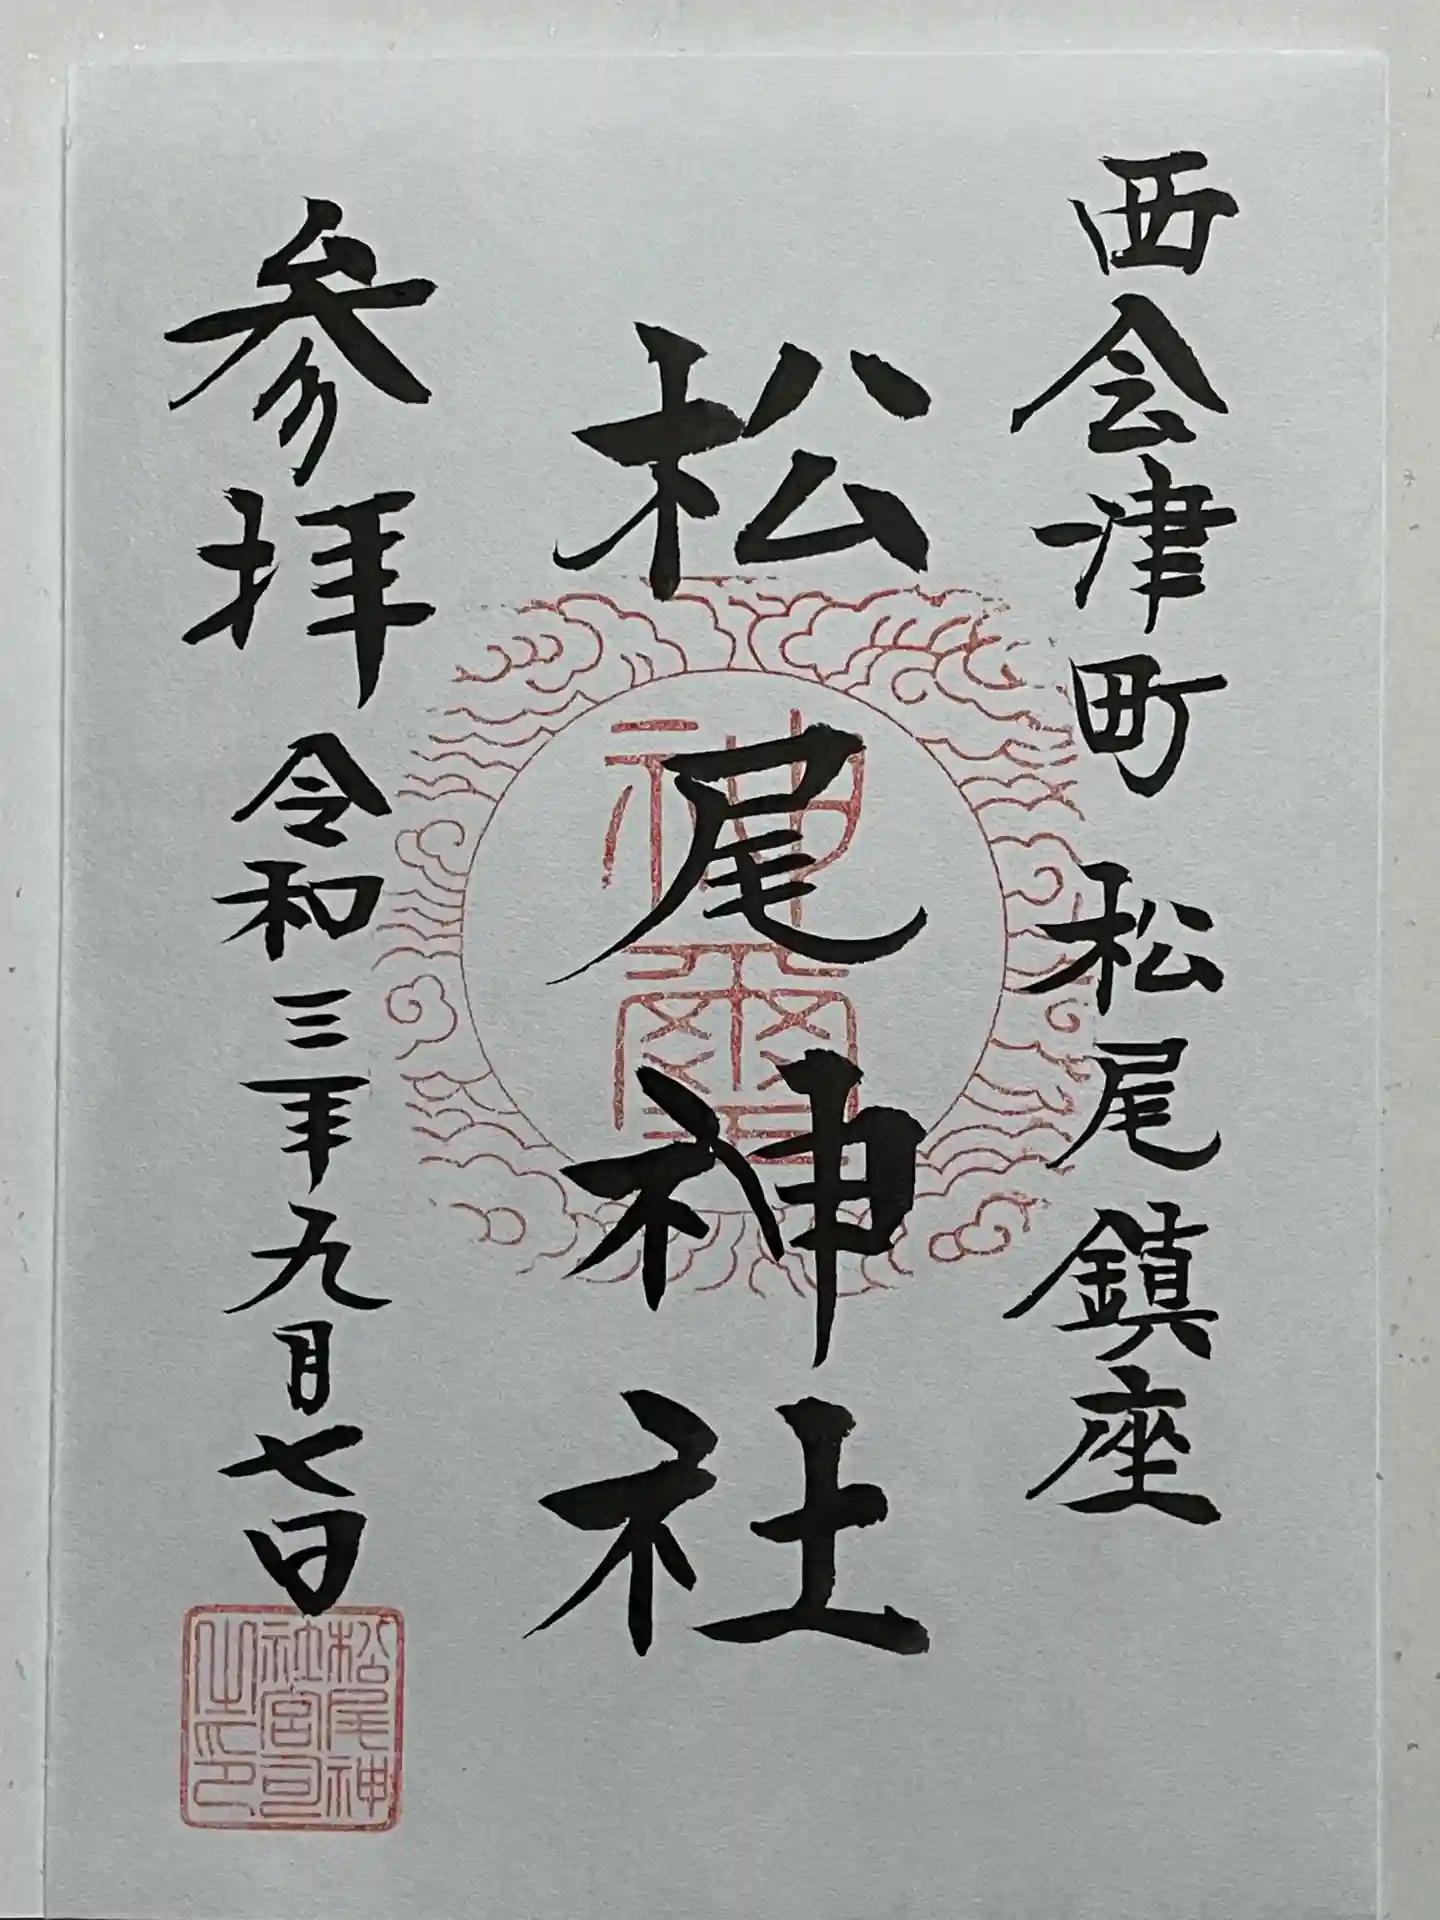 西会津町 松尾鎮座
松尾神社
神璽
参拝 令和三年九月七日
松尾神
社宮司
之印